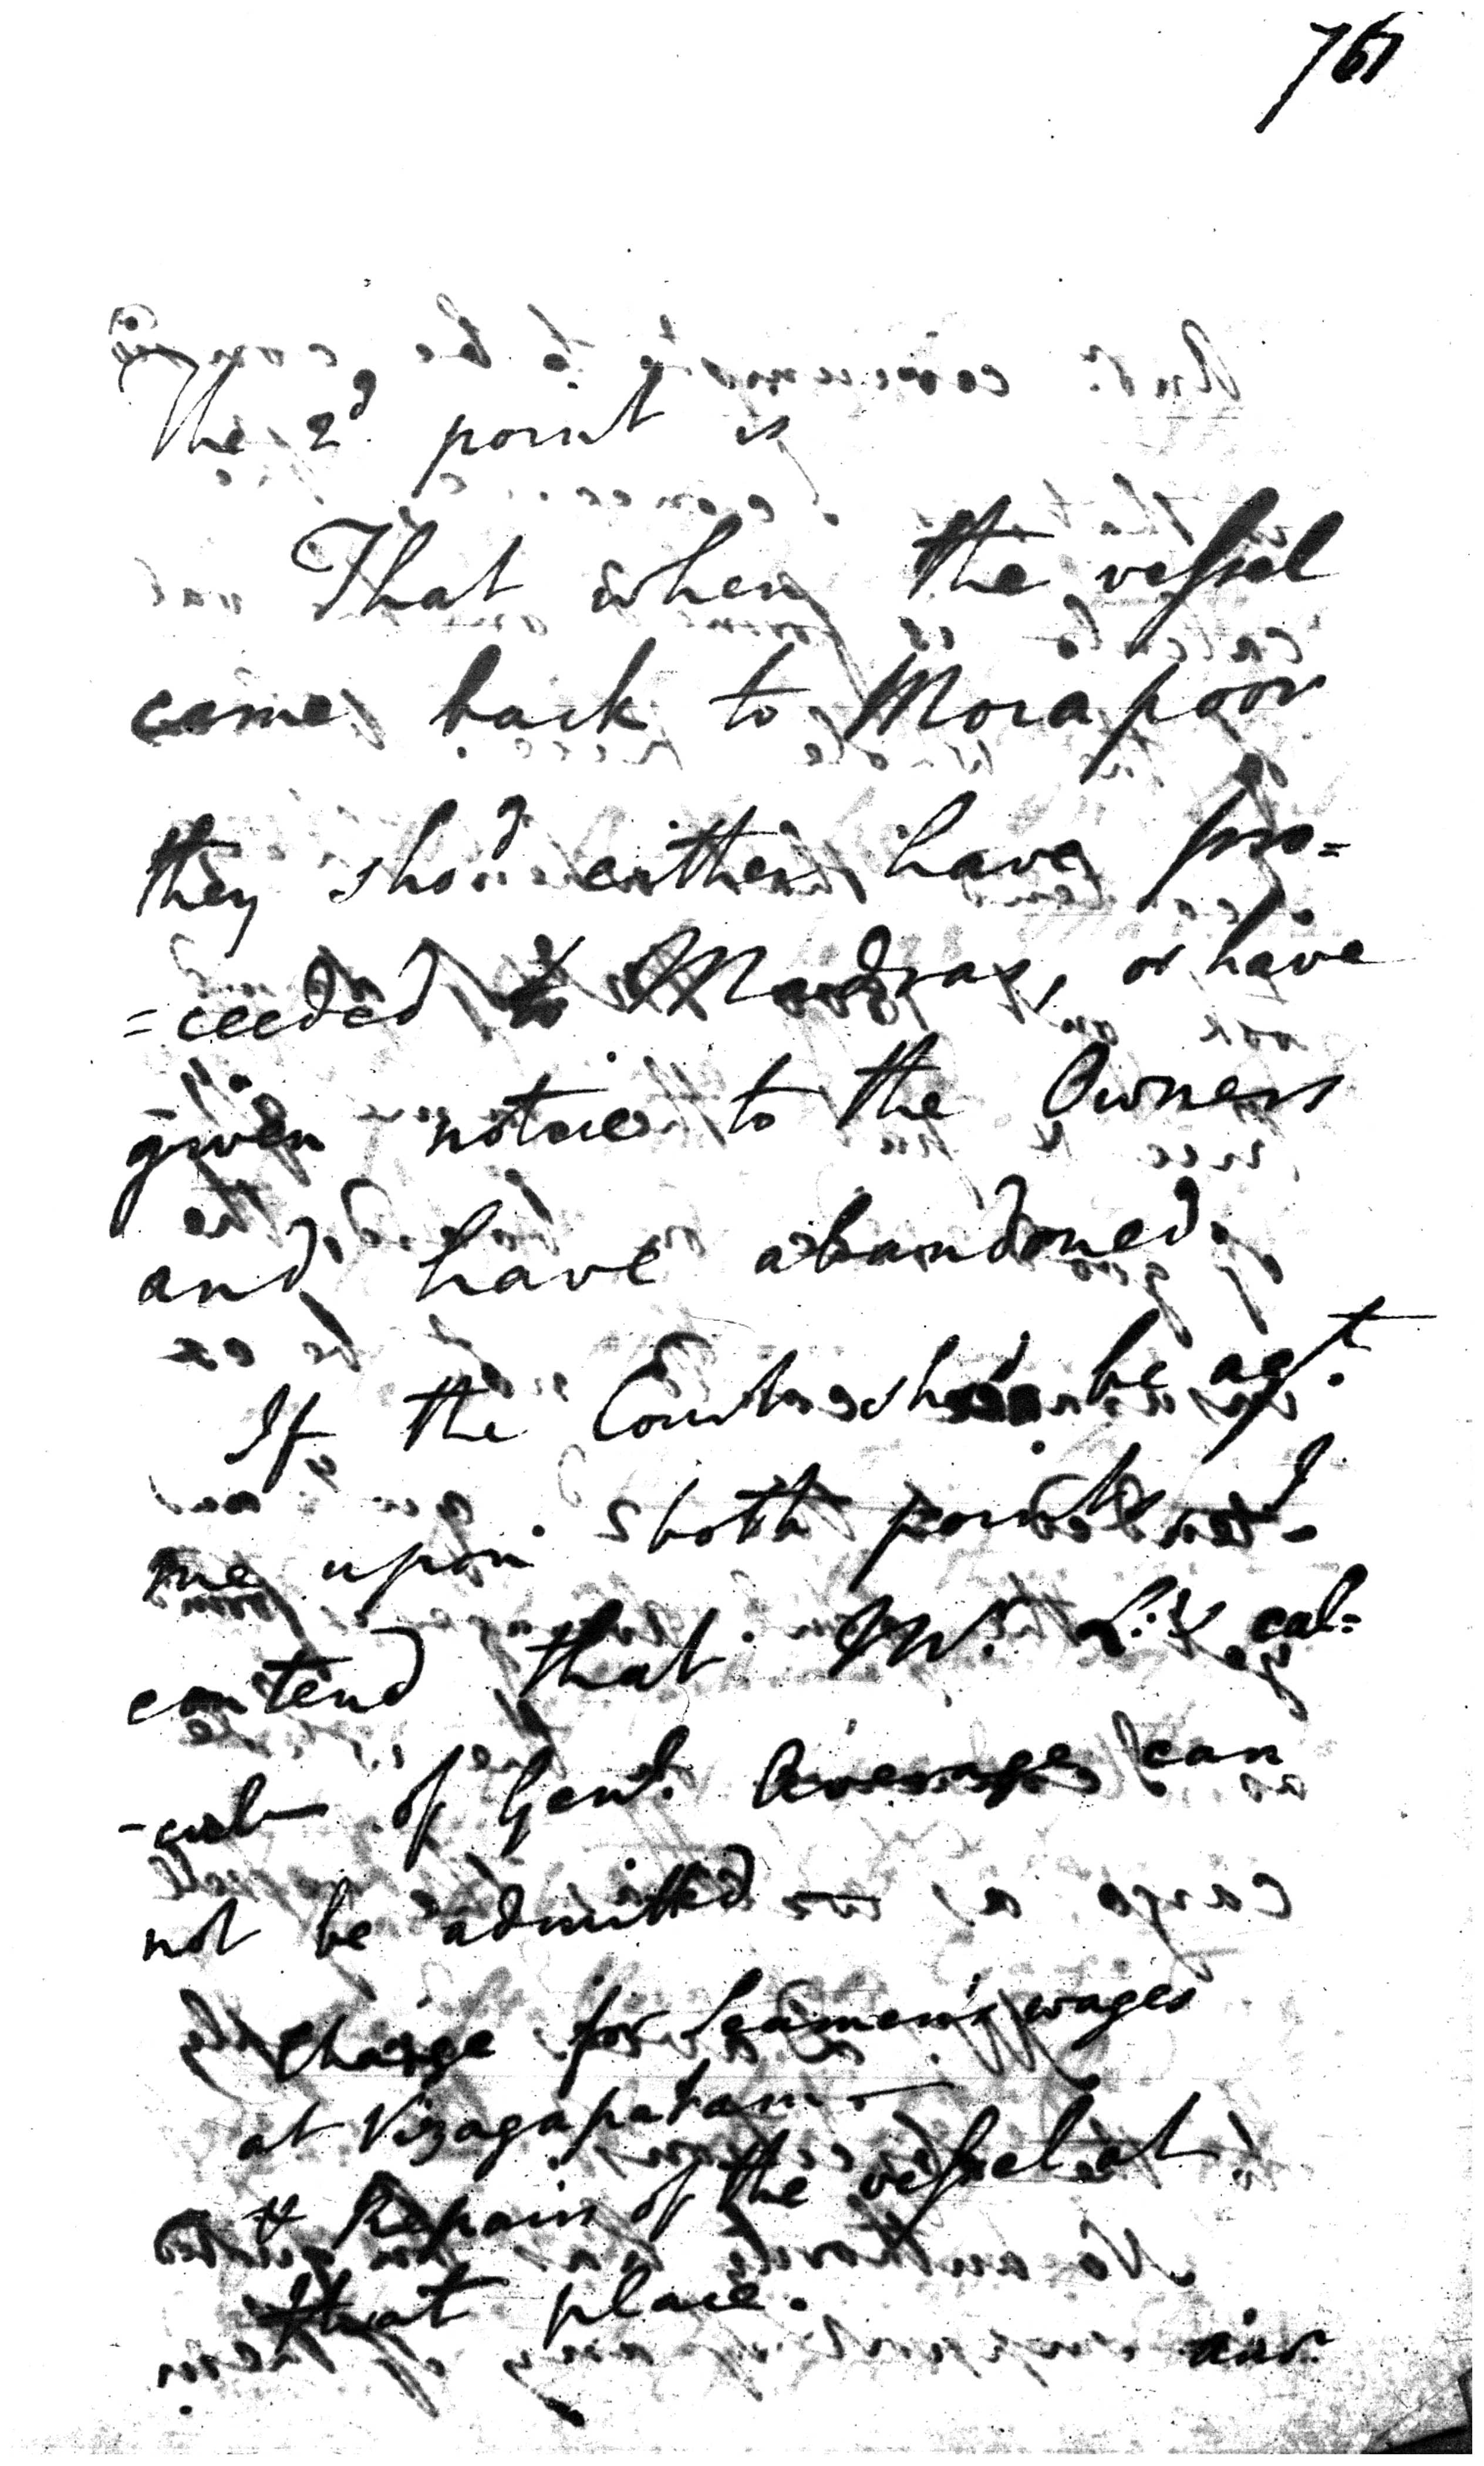 761
The 2d. point is
That when the vessel
came back to Morapoor
they shod. either have pro=
=ceeded to Madras, or have
given notice to the Owners
and have abandoned.
If the Court shod. be agt.
me upon both points I
contend that Mr. L.'s cal=
-culn of Genl. Average can
not be admitted —
Charge for Seamen's wages
at Vizagapatam —
& Repairs of the vessel at
that place.